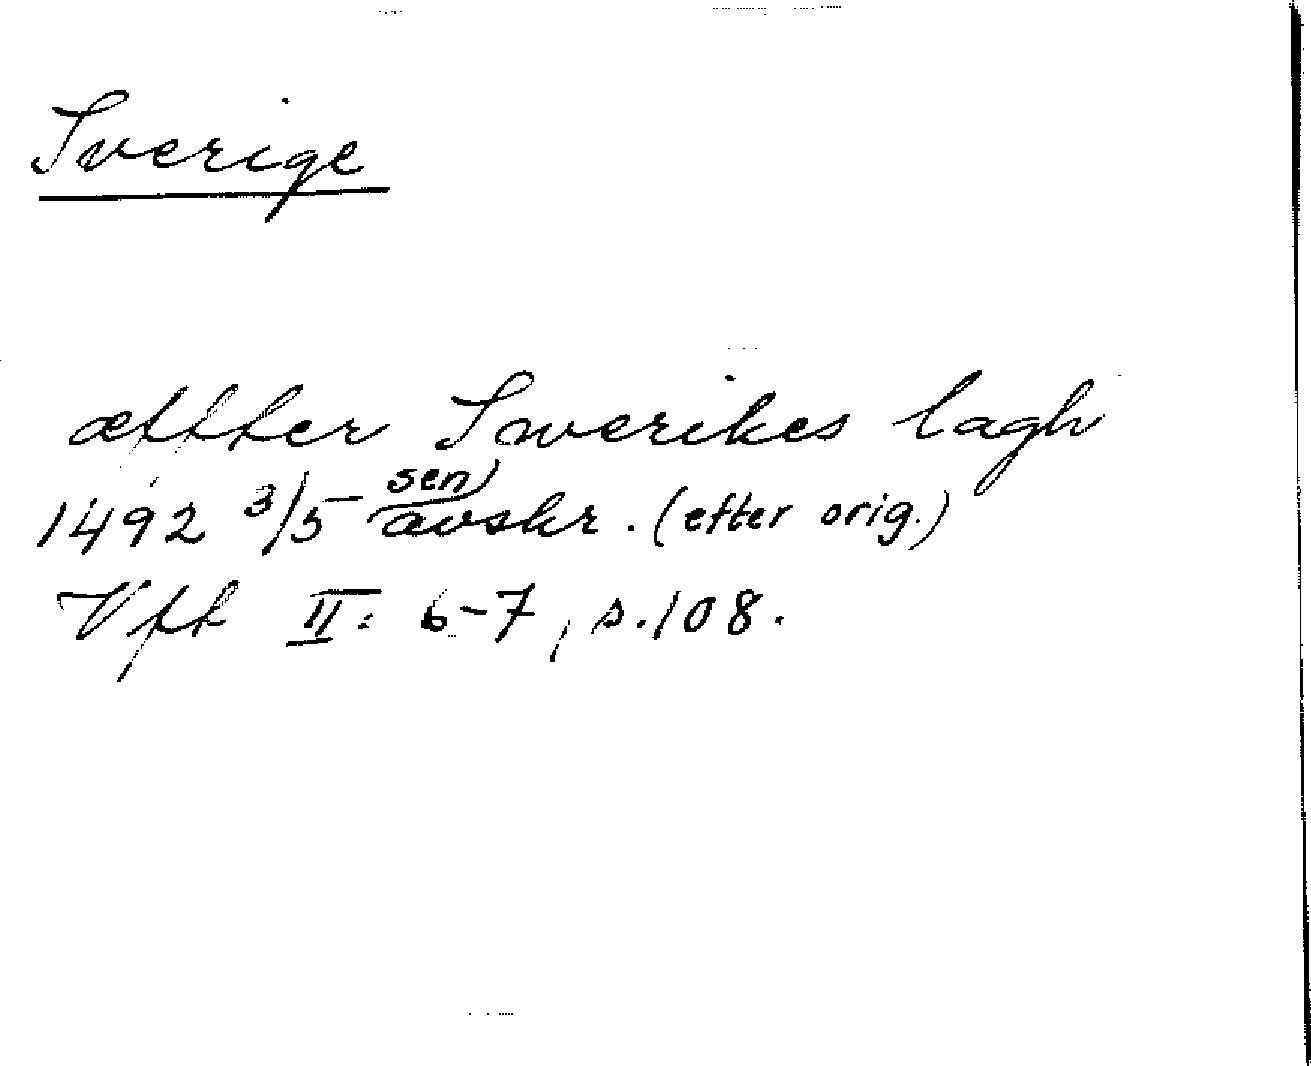 Sverige
æftter Swerikes lagh
1492 3/5 sen avskr. (efter orig.)
Vft II: 6-7, s. 108.